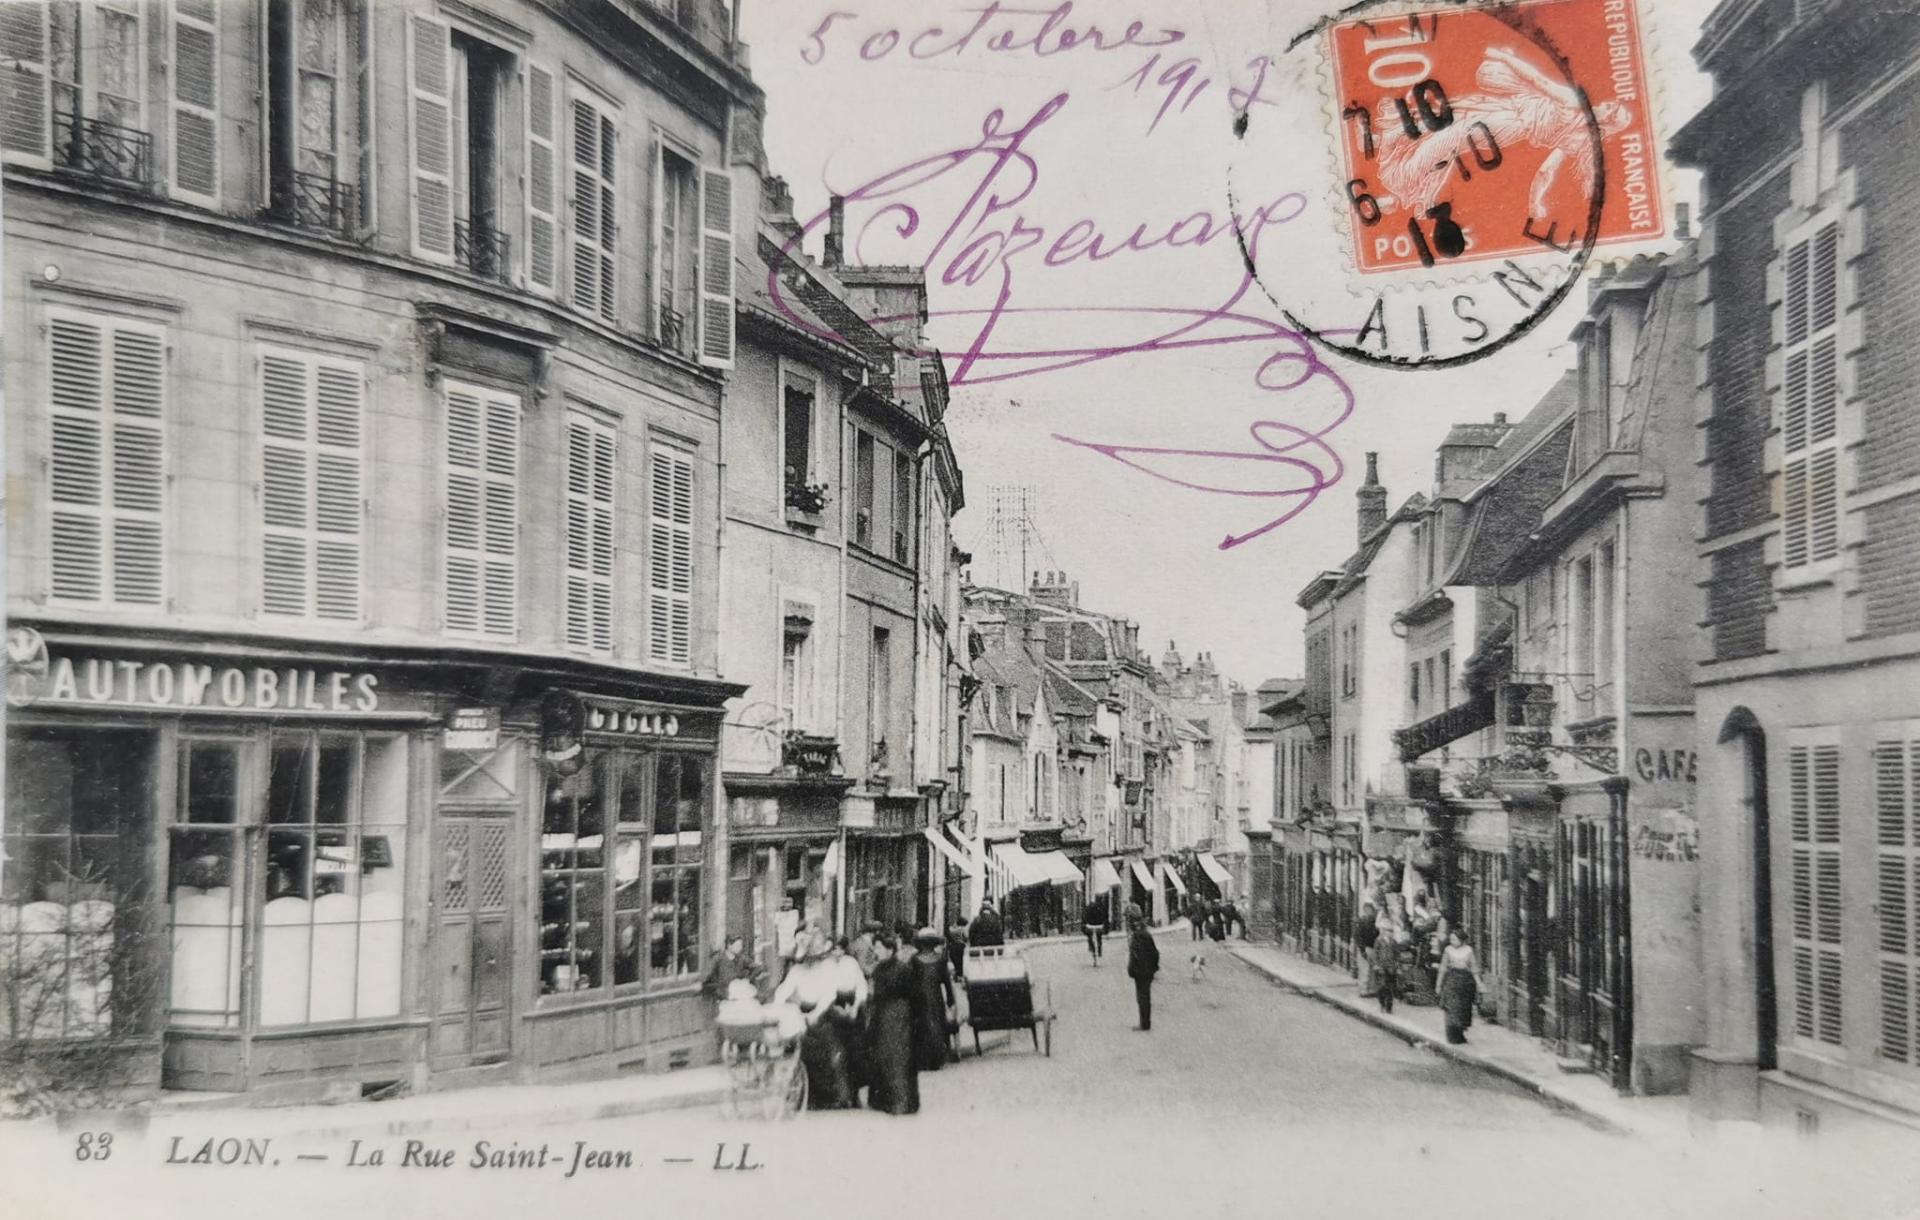 5 octobre
1913
10
RÉPUBLIQUE FRANÇAISE
7 10
6 -10
13
AISNE
AUTOMOBILES
PNEU
TABAC
CAFE
83 LAON. — La Rue Saint-Jean. — LL.